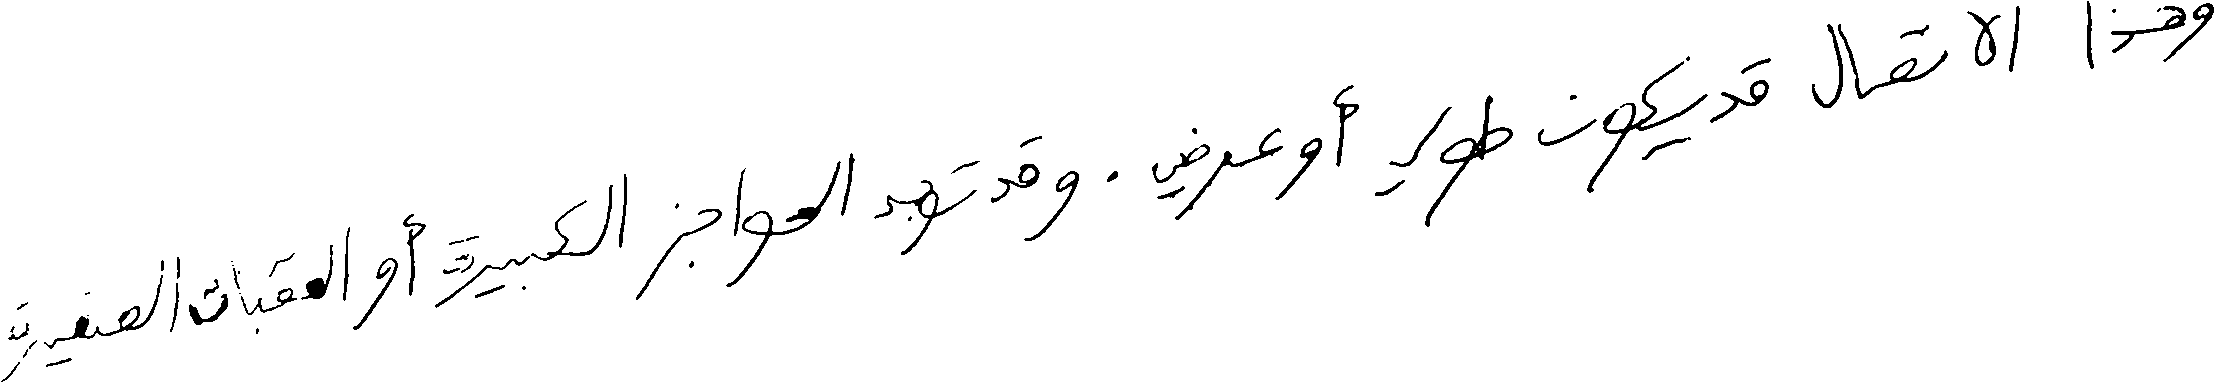 وهذا الانتقال قد يكون طويل أو عريض. وقد توجد الحواجز الكبيرة أو العقبات الصغيرة